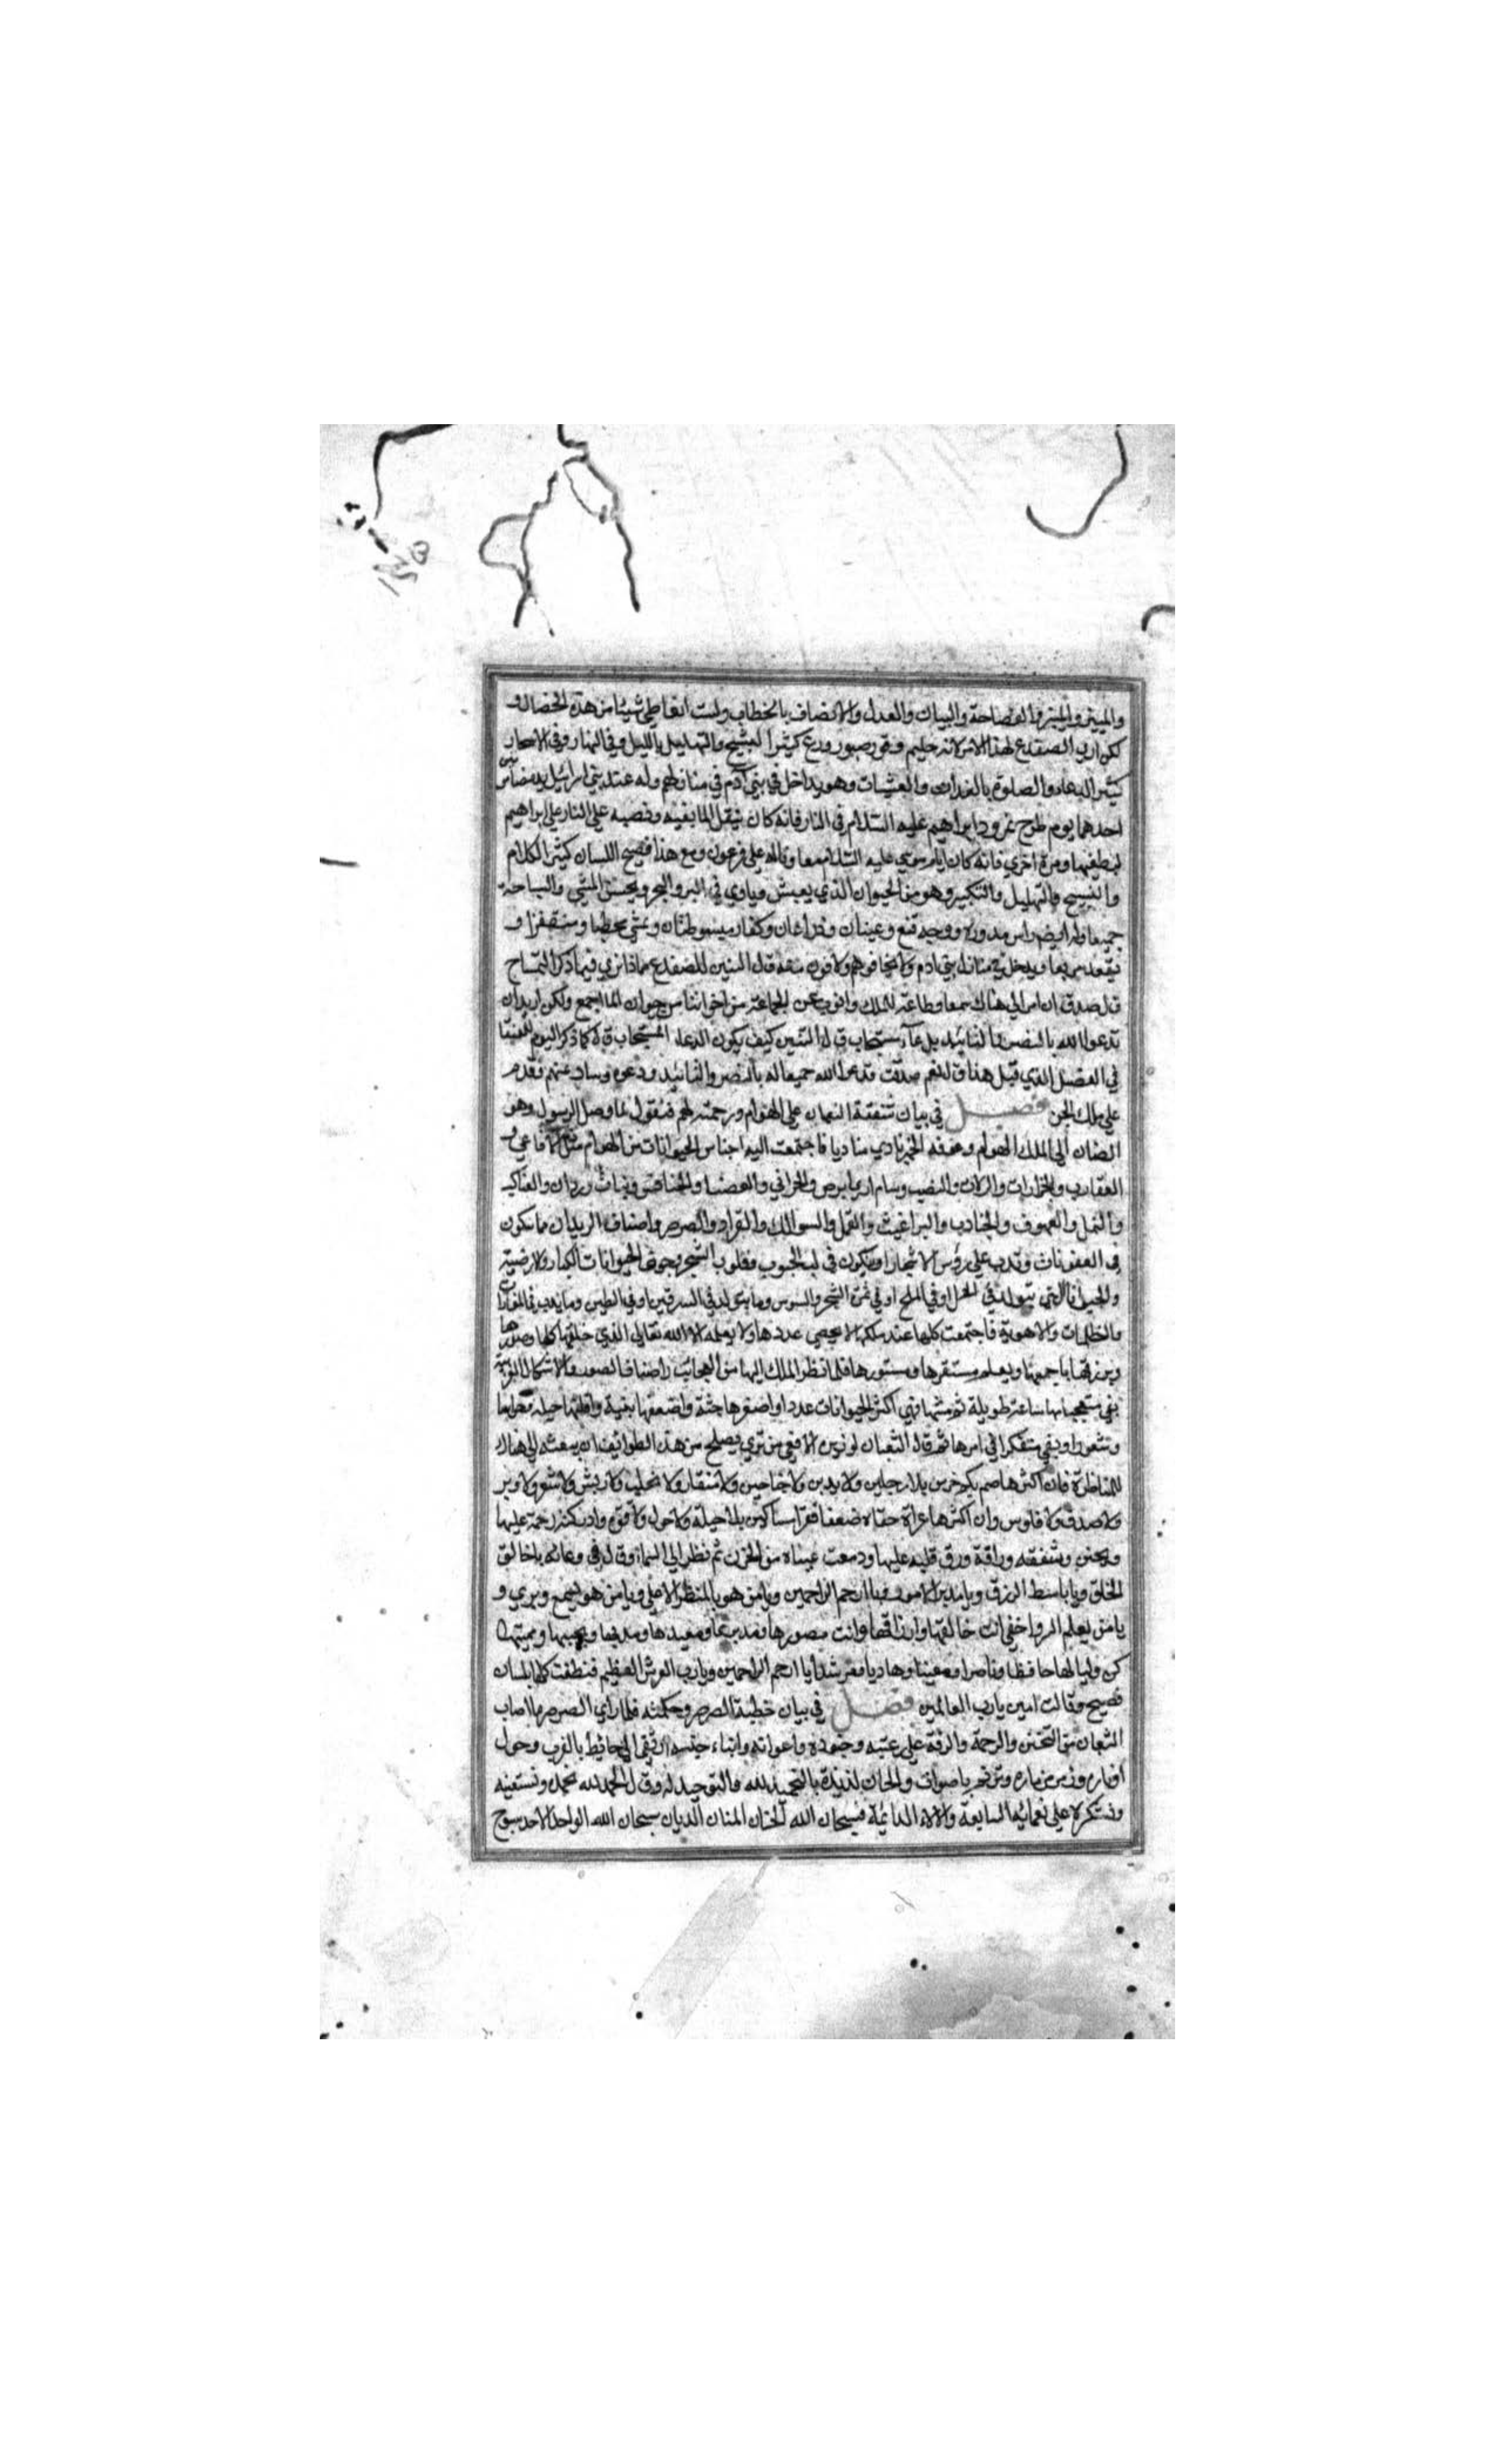 والتمييز والفصاحة والبيان والعدل والانصاف بالخطاب ولست اتعاطى شيئا من هذه الخصال و
لكن اري الضفدع لهذا الامر لانه حليم وقور صبور ورع كثير التسبيح والتهليل بالليل وفي النهار وفي الاسحار
كثير الدعاء والصلوة بالغداة والعشيات وهو يداخل في بني آدم في منازلهم وله عند بني اسرائيل يد بيضا مرتين
احدهما يوم طرح نمرود ابراهيم عليه السلام في النار فانه كان ينقل الما بفيه وفصبه على النار على ابراهيم
ليطفيها ومرة اخري فانه كان ايام موسي عليه السلام معاونا له على فرعون ومع هذا فصيح اللسان كثير الكلام
والتسبيح والتهليل والتكبير وهو من الحيوان الذي يعيش وياوي في البر والبحر ويحسن المشي والسباحة
جميعا وله ايضا راس مدورة ووجه قنع وعينان وذراعان وكفان مبسوطتان ويمشي متخطيا ومتقفزا و
يقعد مربعا ويدخل في منازل بني ادم ولا يخافوهم ولا يخافون منه قال التنين للضفدع ماذا تري فيما ذكر التمساح
قال صدق ان امر الي هناك سمعا وطاعة للملك وانوب عن الجماعة من اخواننا من حيوان الما اجمع ولكن اريد ان
تدعوا الله بالنصر والتائيد بدعآء مستجاب قال التنين كيف يكون الدعاء المستجاب قال كما ذكر اليوم للعنقا
في الفصل الذي قبل هذا قال نعم صدقت فدعوا الله جميعا له بالنصر والتائيد ودعوه وساد عنهم فقدم
على ملك الجن فصل في بيان شفقة الثعبان على الهوام ورحمته لهم فنقول لما وصل الرسول وهو
الضان الى الملك الهوام وعرفه الخبر نادي مناديا فاجتمعت اليه اجناس الحيوانات من الهوام مثل الافاعي و
العقارب والجرارات والدلان والضب وسام ابرص والحرابي والعضا والخنافس وبنات وردان والعناكب
والنمل والعهوف والجنادب والبراغيث والقمل والسوالك والقراد والصرصر واصناف الديدان مما يتكون
في العفونات وتدب على رؤس الاشجار او يتكون في لب الحبوب وقلوب الشجر وجوف الحيوانات الكبار والارضية
والحيوانات التي تتولد في الخل او في الملح او في ثمرة الشجر والسوس وما يتولد في السرقين او في الطين وما يدب في المغارات
والظلمات والاهوية فاجتمعت كلها عند ملكها لا يحصي عددها ولا يعلمه الا الله تعالى الذي خلقها كلها وصورها
ويرزقها باجمعها ويعلم مستقرها ومستودعها فلما نظر الملك اليها من العجائب واصناف الصور والاشكال الغريبة
بقي متعجبا منها ساعة طويلة ثم فتشها فهي اكثر الحيوانات عددا واصغرها جثة واضعفها بنية واقلها حيلة وحواسا
وشعورا وبقي متفكرا في امرها ثم قال الثعبان لوزيره الافعي من تري يصلح من هذه الطوائف ان يبعثه الى هناك
للمناظرة فان اكثرها صم بكم خرس بلا رجلين ولا يدين ولا جناحين ولا منقار ولا مخلب ولا ريش ولا شعر ولا وبر
ولا صدف ولا فلوس وان اكثرها عراة حفاة ضعفا فقرا مساكين بلا حيلة ولا حول ولا قوة وادركته رحمة عليها
وتحنن وشفقه ورافة ورق قلبه عليها ودمعت عيناه من الحزن ثم نظر الى السماء وقال في دعائه يا خالق
الخلق ويا باسط الرزق ويا مدبر الامور ويا ارحم الراحمين ويا من هو بالمنظر الاعلى ويا من هو يسمع ويري و
يا من يعلم السر واخفي انت خالقها ورازقها وانت مصورها ومبديها ومعيدها ومحييها ومميتها
كن وليا لها حافظا وناصرا ومعينا وهاديا ومرشدا يا ارحم الراحمين ويا رب العرش العظيم فنطقت كلها بلسان
فصيح وقالت امين يارب العالمين فصل في بيان خطبة الصرصر وحكمته فلما راي الصرصر ما اصاب
الثعبان من التحنن والرحمة والرقة على رعيته وجنوده واعوانه وابناء جنسه ارتقى الى حائط بالقرب وحول
اوتاره وزمر مزماره وترنم باصوات والحان لذيذة بالتحميد لله والتوحيد له وقال الحمد لله نحمده ونستعينه
ونشكره على نعمائه السابغة والالاء الدائمة فسبحان الله الحنان المنان الديان سبحان الله الواحد الاحد سبوح